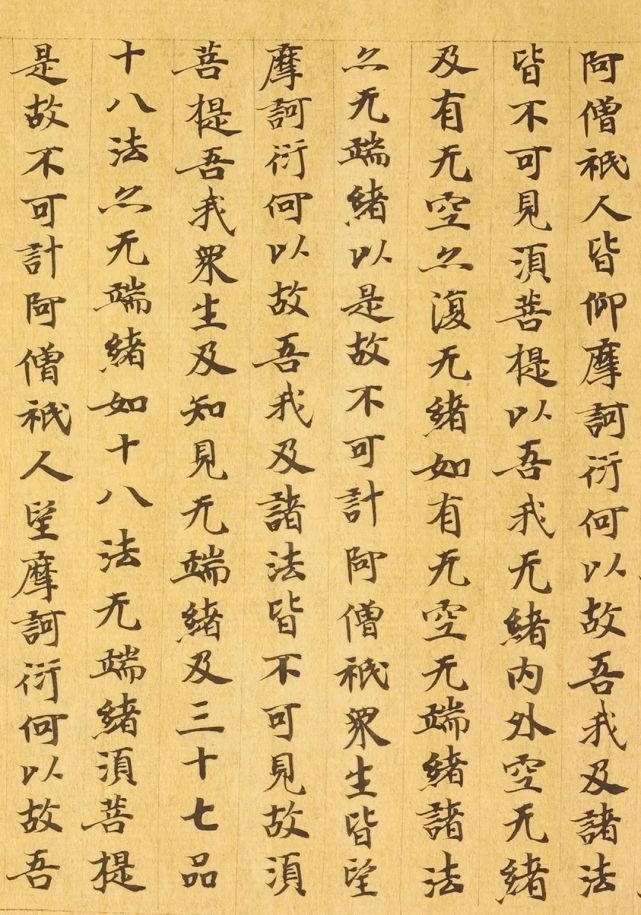 阿僧祇人皆仰摩訶衍何以故吾我及諸法
皆不可見須菩提以吾我无緒内外空无緒
及有无空亦復无緒如有无空无端緒諸法
亦无端緒以是故不可計阿僧祇衆生皆望
摩訶衍何以故吾我及諸法皆不可見故須
菩提吾我衆生及知見无端緒及三十七品
十八法亦无端緒如十八法无端緒須菩提
是故不可計阿僧祇人望摩訶衍何以故吾